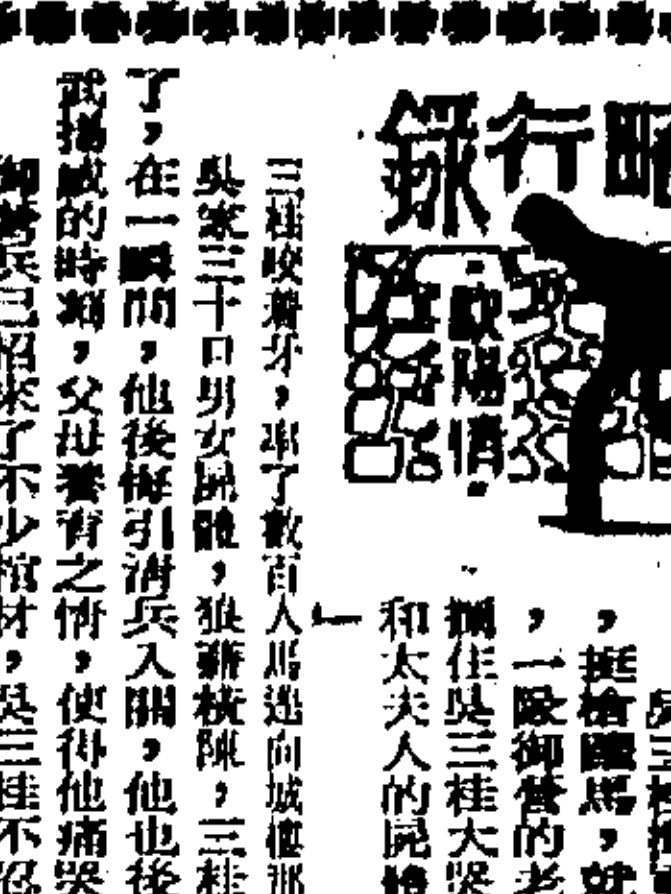 行錄
歐陽
，挺槍躍馬，
，一隊御營的老
攔住吳三桂大哭
和太夫人的屍
」
三桂咬着牙，率了數百人馬迤向城樓那
吳家三十口男女屍體，狼藉橫陳，三桂
了，在一瞬間，他後悔引清兵入關，他也後
武揚威的時刻，父母養育之情，使得他痛哭
御營兵已招來了不少棺材，吳三桂不忍